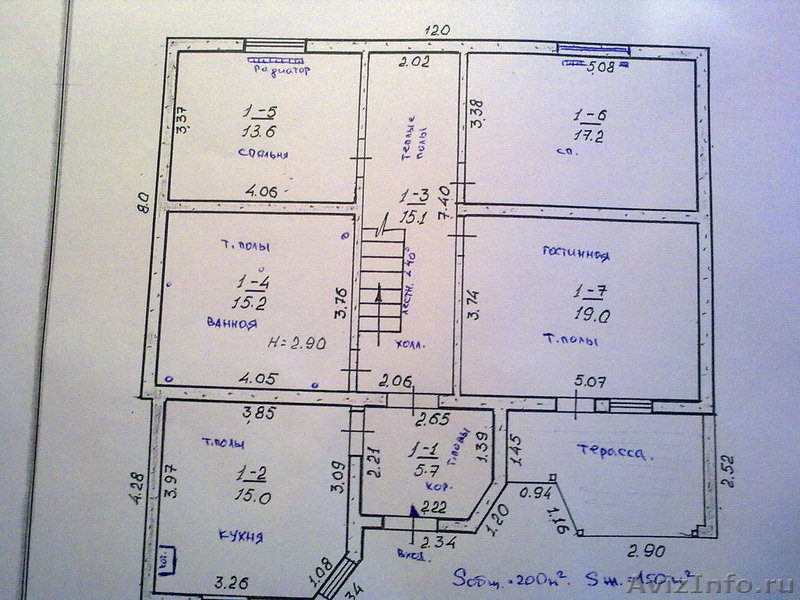 12.0
2.02
5,08
Радиатор
3,37
1-5
13.6
спальня
4.06
Теплые
полы
3,38
1-6
17.2
сп.
8.0
1-3
15.1
7.40
Т.полы
1-4
15.2
Ванная
H=2.90
3,76
4.05
холл.
2.06
гостинная
3.74
1-7
19.0
Т.полы
5.07
3,85
Т.полы
3,97
1-2
15.0
кухня
3,09
4.28
3.26
1.08
2.65
2.21
1-1
5.7
Т.полы
1.39
кор.
2,22
2.34
вход.
1.45
1.20
Терасса.
0.94
1,16
2.90
2.52
Sобщ.=200м². Sж.=150м²
AvizInfo.ru